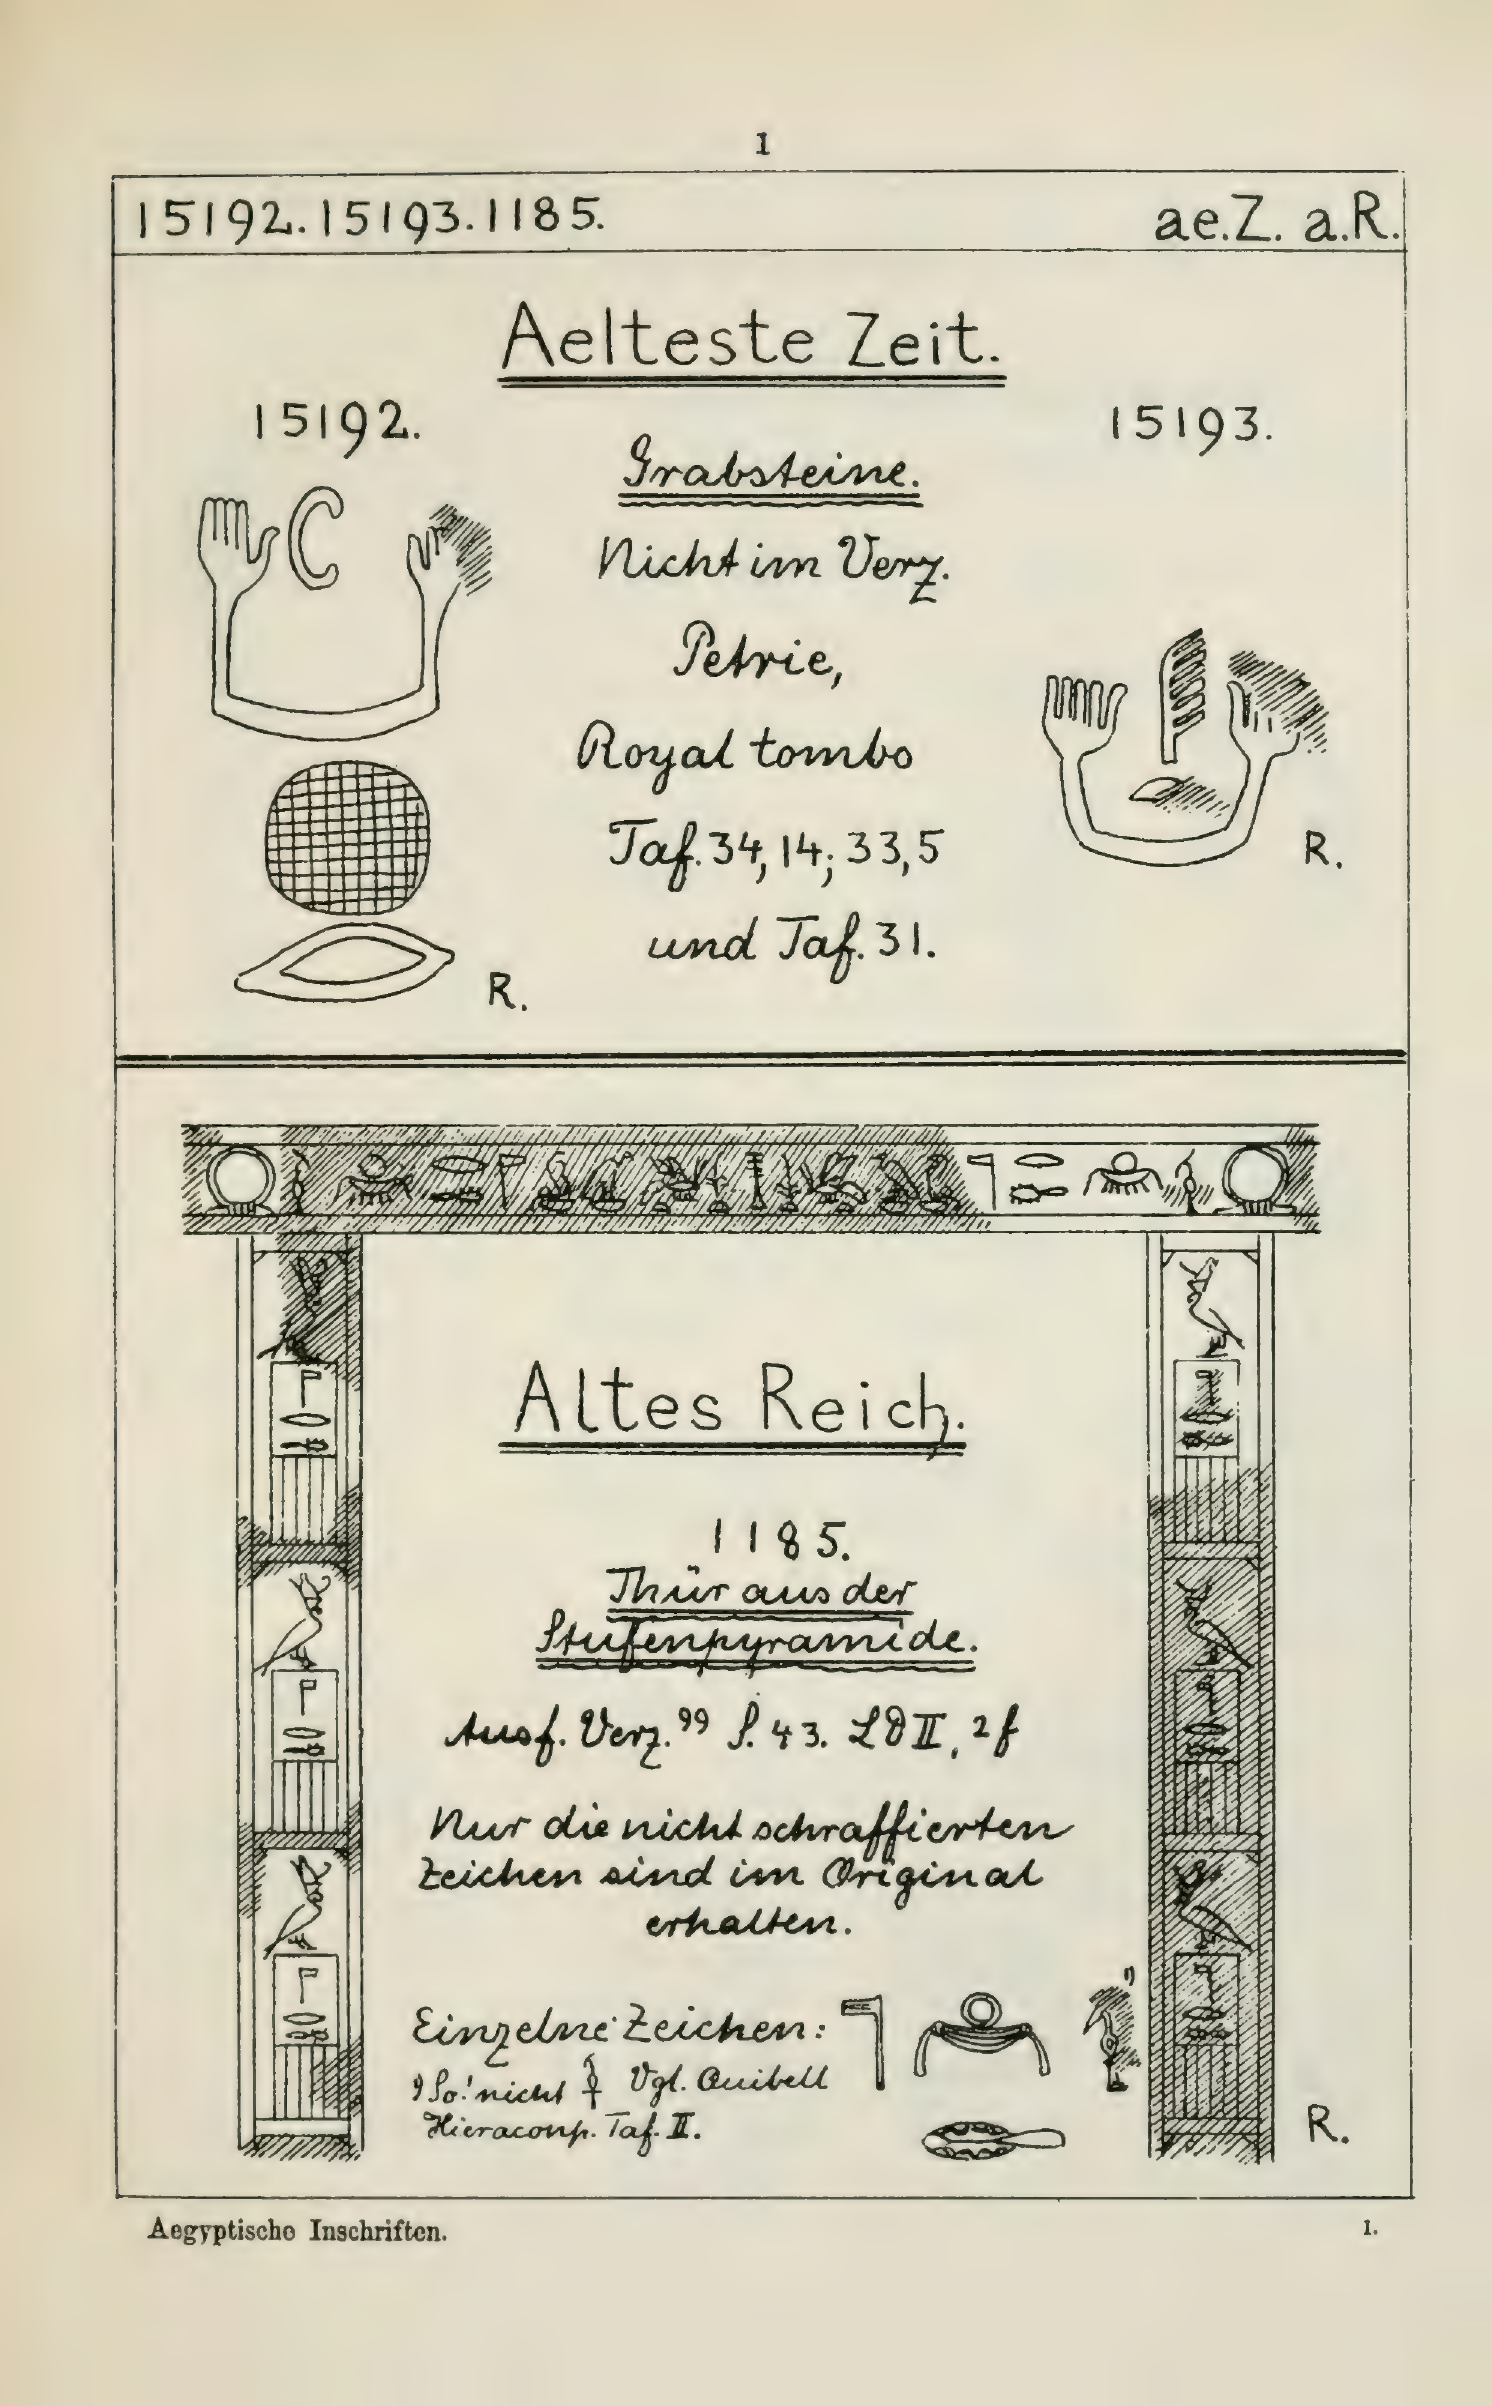 1
15192. 15193. 1185. ae.Z. a.R.
Aelteste Zeit.
15192. 15193.
Grabsteine.
Nicht im Verz.
Petrie,
Royal tombs
Taf. 34, 14; 33, 5
und Taf. 31.
R.
R.
Altes Reich.
1185.
Thür aus der
Stufenpyramide.
Ausf. Verz. 99 S. 43. LD II, 2f
Nur die nicht schraffierten
Zeichen sind im Original
erhalten.
Einzelne Zeichen: 1)
1) So! nicht Vgl. Quibell
Hieraconp. Taf. II.
R.
Aegyptische Inschriften. 1.